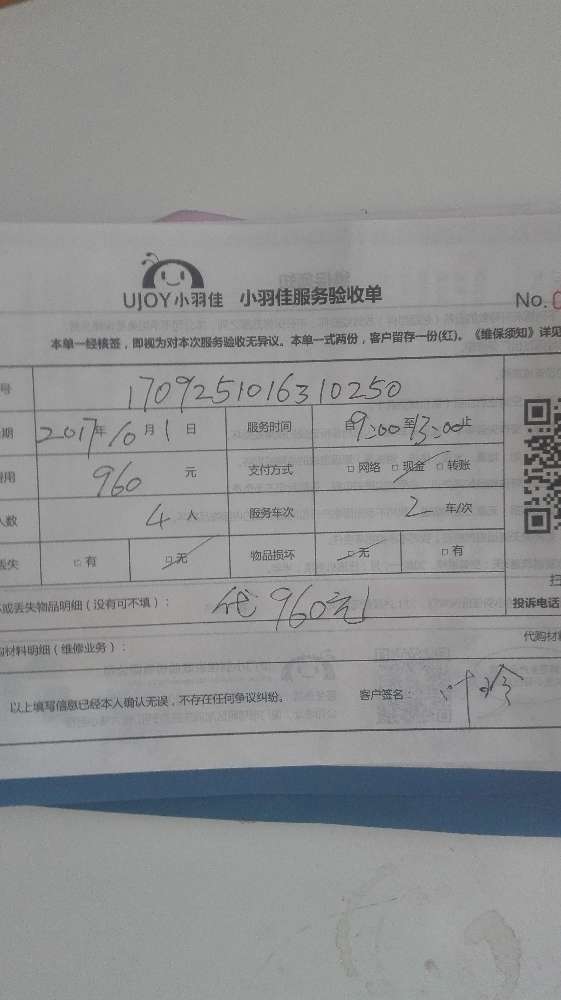 UJOY小羽佳 小羽佳服务验收单
No.
本单一经核签，即视为对本次服务验收无异议。本单一式两份，客户留存一份(红)。《维保须知》详见
号 1709251016310250
期 2017年10月1日 服务时间 自9:00至13:00止
费用 960 元 支付方式 □网络 □现金 □转账
人数 4 人 服务车次 2 车/次
丢失 □有 □无 物品损坏 □无 □有
坏或丢失物品明细（没有可不填）： 代960元
投诉电话
购材料明细（维修业务）： 代购材
以上填写信息已经本人确认无误，不存在任何争议纠纷。 客户签名：